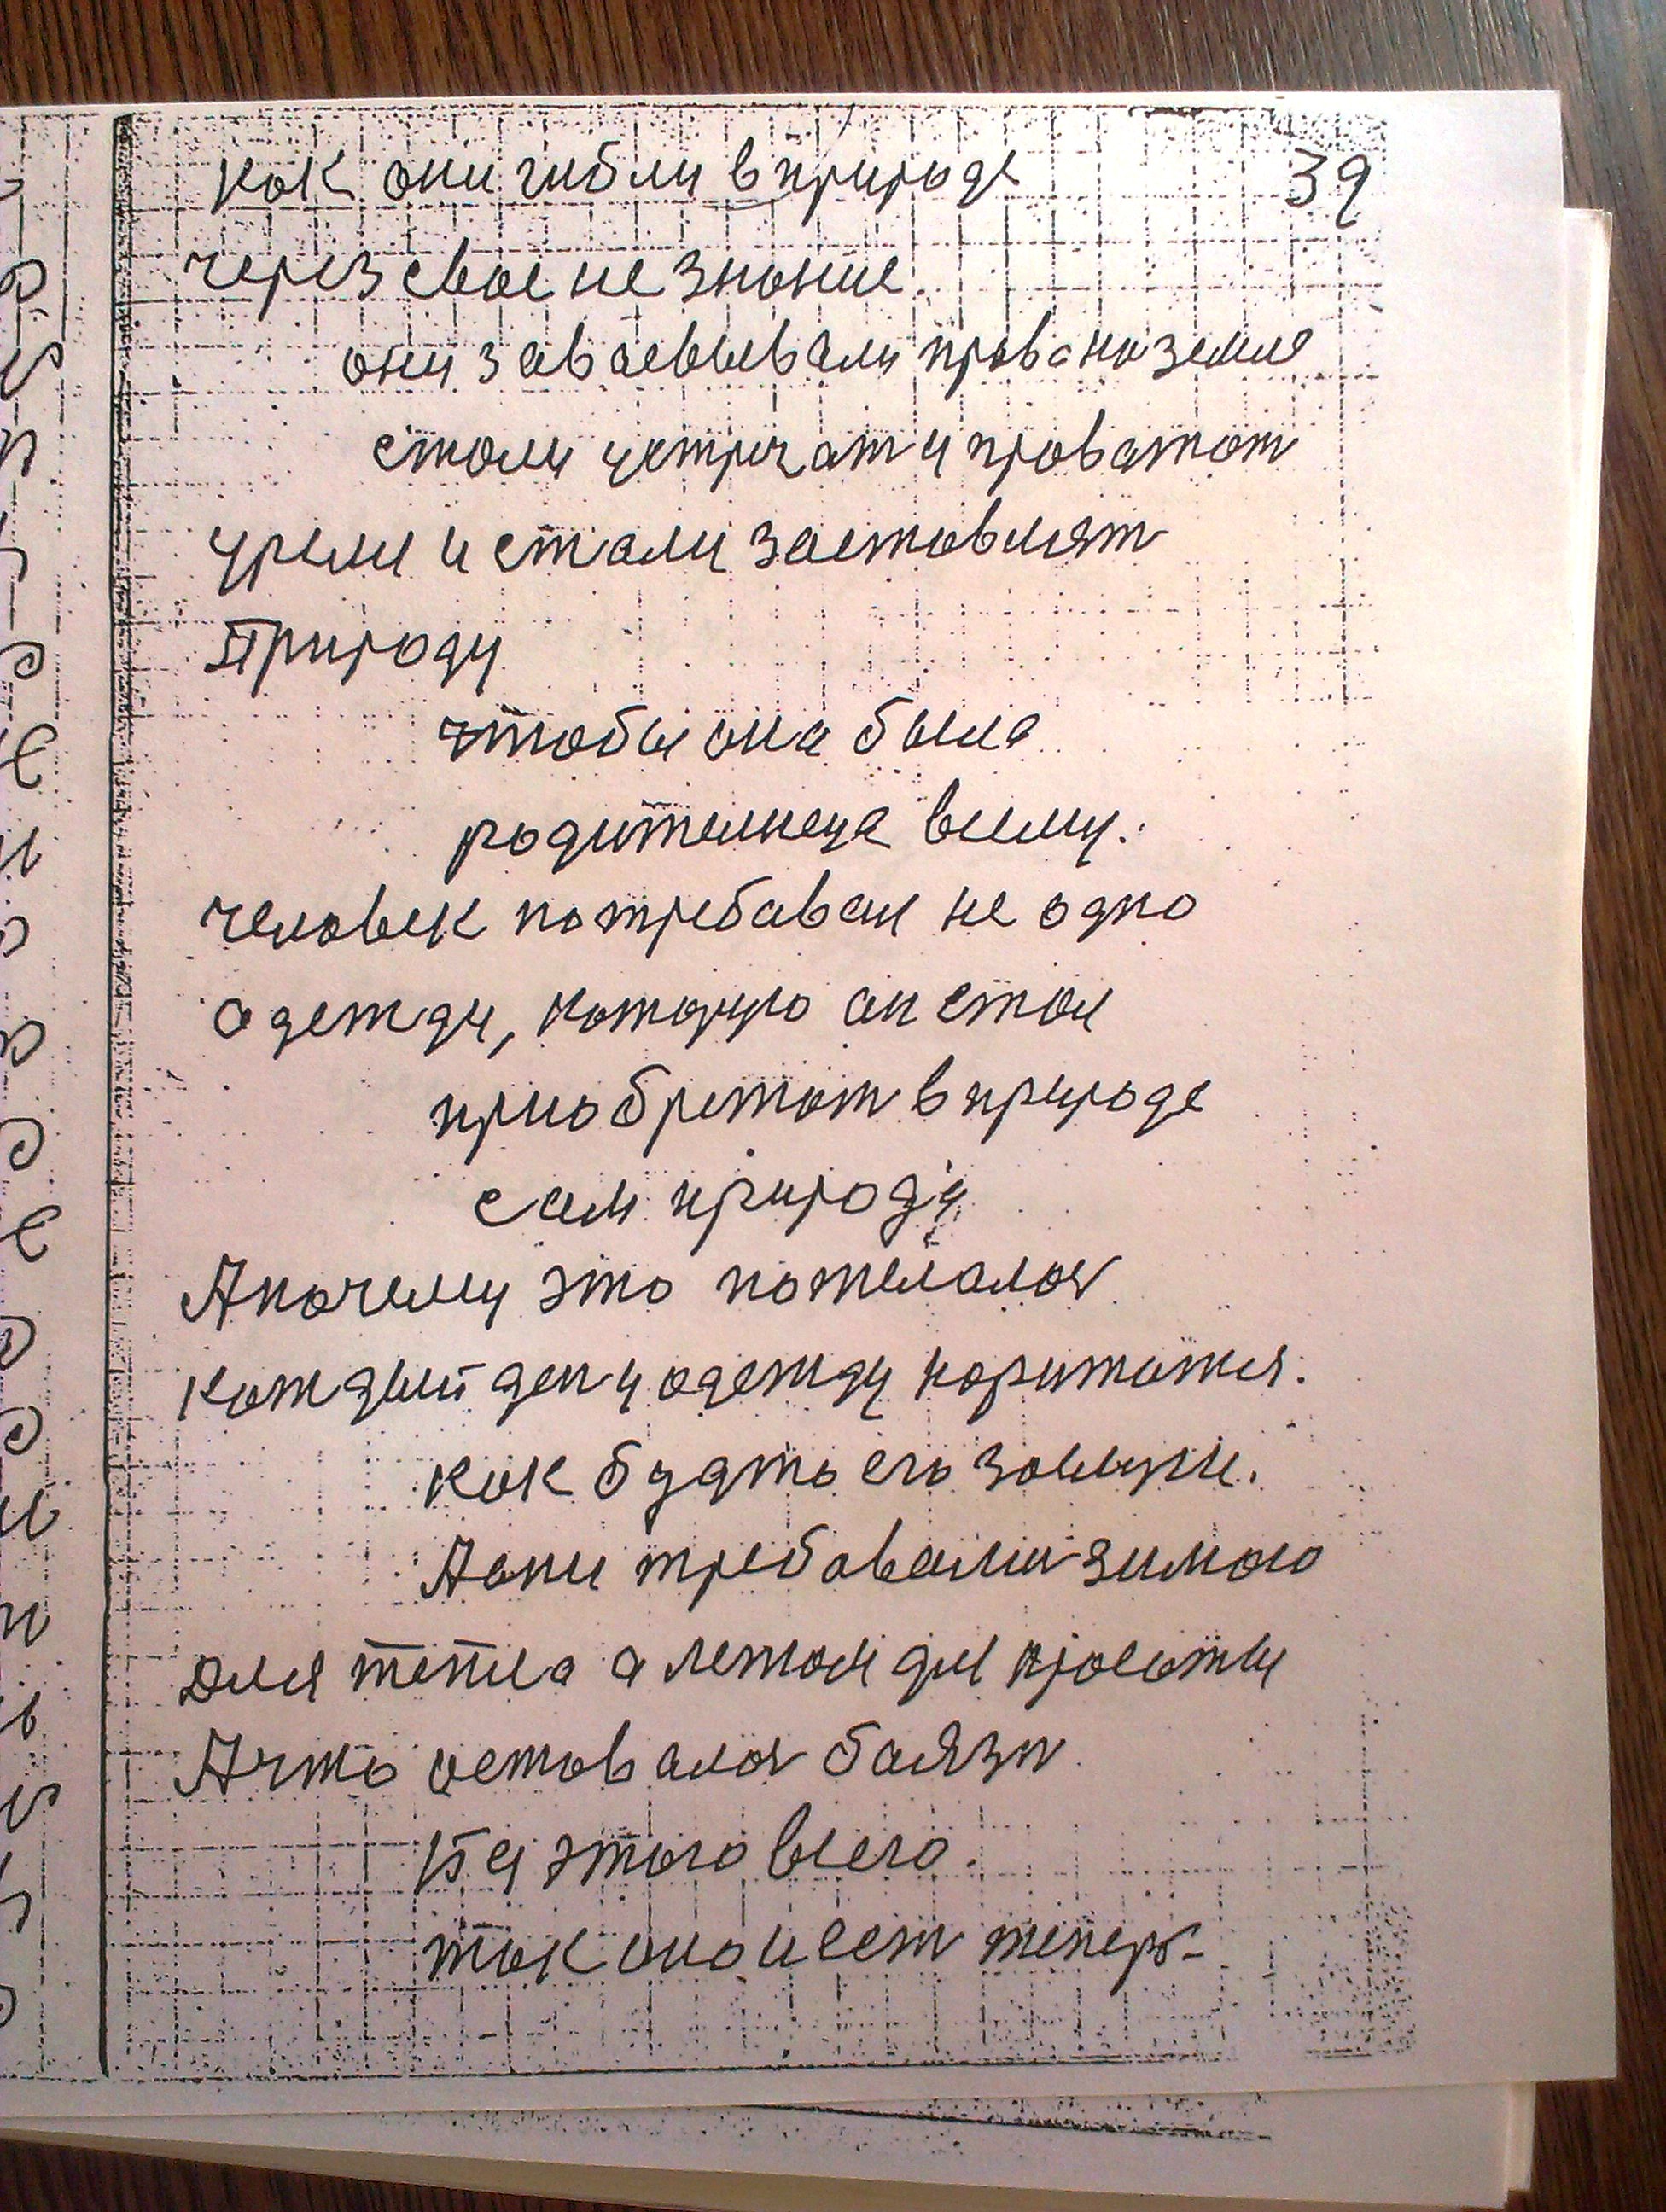 как они гибли в природе 39
через свое не знание.
они заваевывали права на земле
стали устричат и проватат
урели и стали заставлят
Природу
чтобы она была
родителнеца всему.
человек потребавал не одно
одежду, которую ан стал
приобретат в природе
сам природу
А почему это пожелалос
каждый ден у одежду наритатся.
как будто его замучи.
А они требовали зимою
для тепла а летом для просты
А что оставалос баязн
Ка этого всего.
так оно и ест теперь-